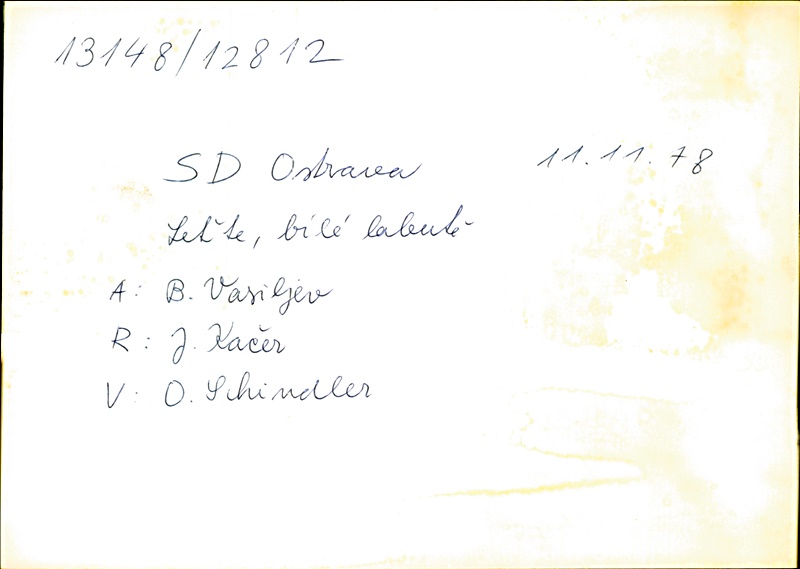 13148/12812
SD Ostrava 11.11.78
Leťte, bílé labutě
A: B. Vasiljev
R: J. Kačer
V: O. Schindler